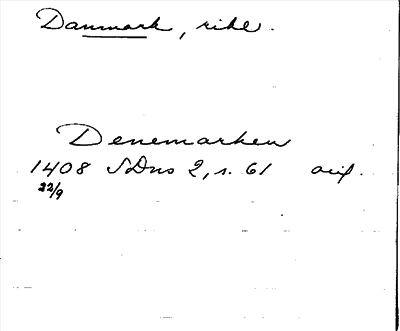 Danmark, rike.
Denemarken
1408 SDns 2, s. 61 orig.
22/9